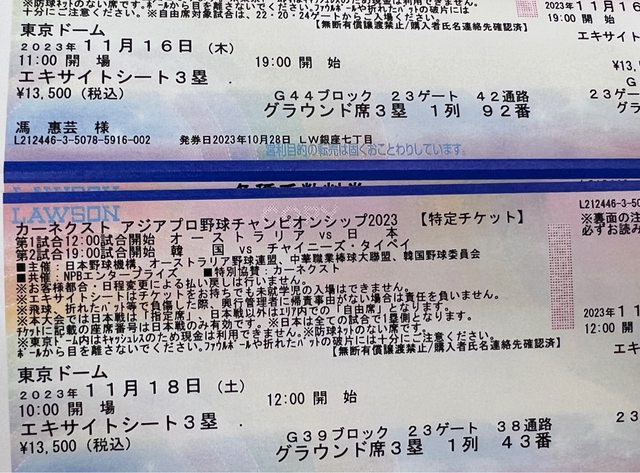 ※防球ネットのない席です。ボールから目を離さないでください。ファウルボールや折れたバットの破片には
十分にご注意ください。※自由席対象試合は、22・20・24ゲートからご入場ください。
【無断有償譲渡禁止/購入者氏名連絡先確認済】
東京ドーム
2023年11月16日(木)
11:00 開 場 19:00 開 始
エキサイトシート3塁
¥13,500(税込)
G44ブロック 23ゲート 42通路
グラウンド席3塁 1列 92番
馮 惠芸 様
L212446-3-5078-5916-002 発券日2023年10月28日 LW銀座七丁目
営利目的の転売は固くおことわりしています。
2023年11月16
19:00 開
エキサイト
¥13,
23ゲー
グラウ
L212446-3
LAWSON
カーネクスト アジアプロ野球チャンピオンシップ2023 【特定チケット】
第1試合12:00試合開始 オーストラリア vs 日 本
第2試合19:00試合開始 韓 国 vs チャイニーズ・タイペイ
■主催:日本野球機構、オーストラリア野球連盟、中華職業棒球大聯盟、韓国野球委員会
■共催:NPBエンタープライズ ■特別協賛:カーネクスト
※お客様都合・日程変更による払い戻しは行いません。
※エキサイトシートはチケットをお持ちでも未就学児の入場はできません。
※飛球、折れたバット等で負傷した際、興行管理者に帰責事由がない場合は責任を負いません。
※本大会では日本戦は「指定席」、日本戦以外はエリア内での「自由席」となります。
チケットに記載の座席番号は日本戦のみ有効です。※日本は全ての試合で1塁側となります。
※東京ドーム内はキャッシュレスのため現金は利用できません。※防球ネットのない席です。
ボールから目を離さないでください。ファウルボールや折れたバットの破片には十分にご注意ください。
【無断有償譲渡禁止/購入者氏名連絡先確認済】
東京ドーム
2023年11月18日(土)
10:00 開 場 12:00 開 始
エキサイトシート3塁
¥13,500(税込)
G39ブロック 23ゲート 38通路
グラウンド席3塁 1列 43番
L212446-3
※裏面の注
必ずお読み
2023年11
12:00 開
エキ
23
グラ